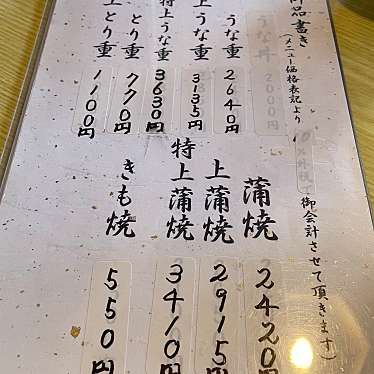 品書き
(メニュー価格表記より
て御会計させて頂きます)
うな丼
2000円
うな重
2640円
上うな重
3135円
特上うな重
3630円
とり重
770円
上とり重
1100円
蒲焼
2420円
上蒲焼
2915円
特上蒲焼
3410円
きも焼
550円